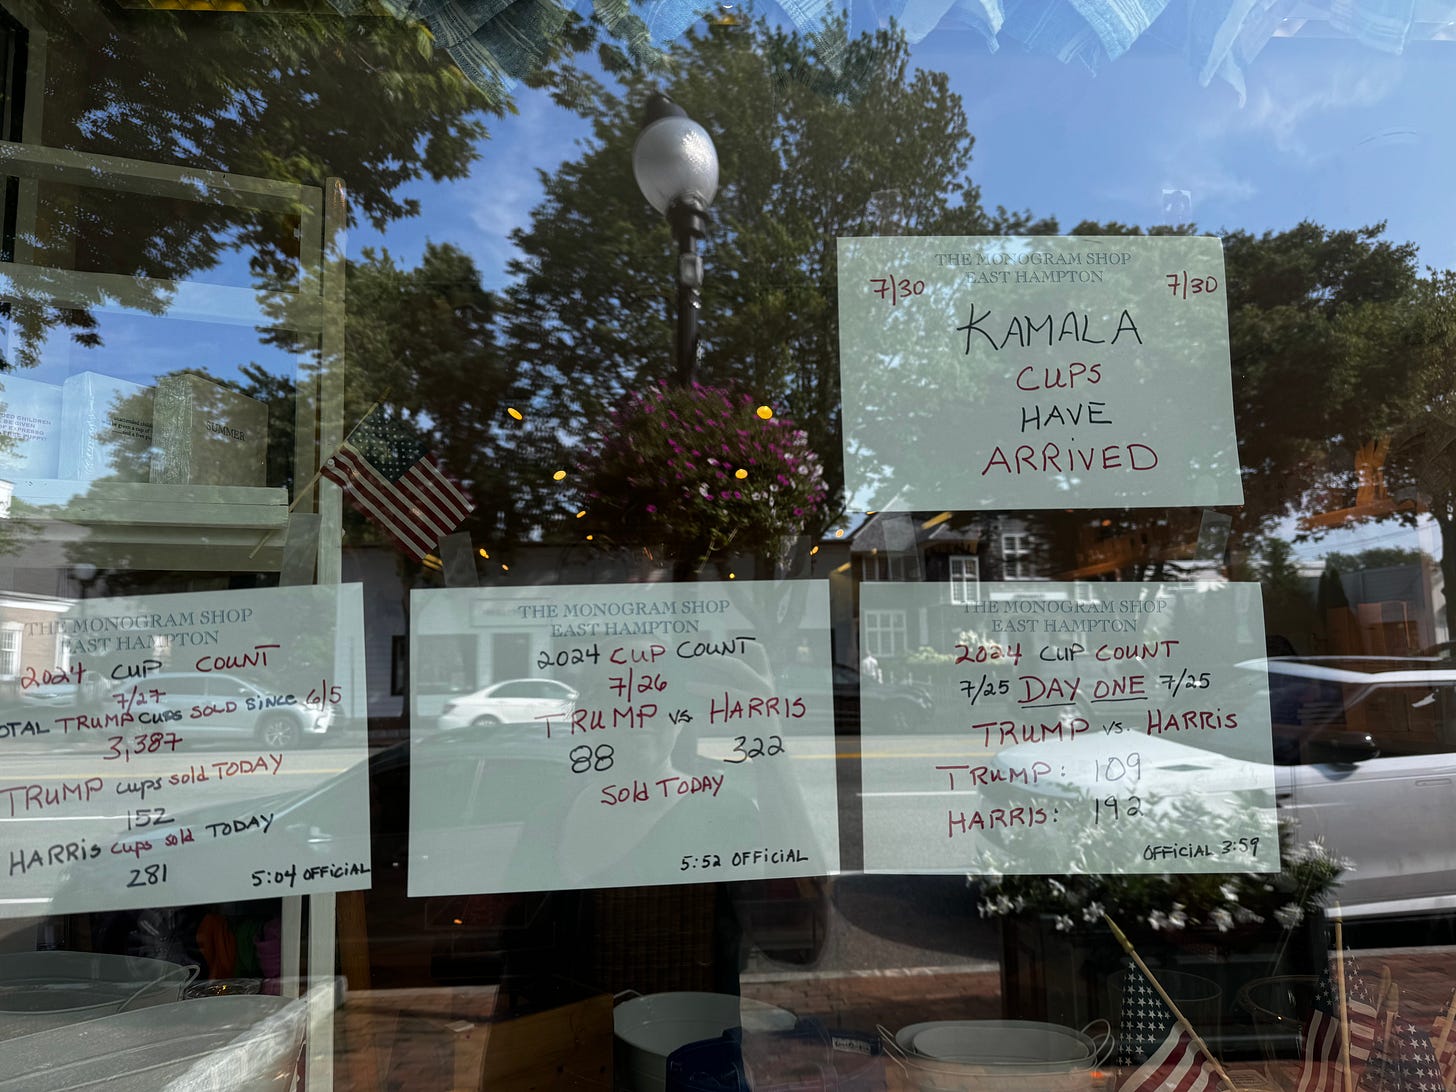 THE MONOGRAM SHOP
EAST HAMPTON
7/30 7/30
KAMALA
CUPS
HAVE
ARRIVED
SUMMER
THE MONOGRAM SHOP
EAST HAMPTON
2024 CUP COUNT
7/27
OTAL TRUMP CUPS SOLD SINCE 6/5
3,387
TRUMP cups sold TODAY
152
HARRIS cups sold TODAY
281
5:04 OFFICIAL
THE MONOGRAM SHOP
EAST HAMPTON
2024 CUP COUNT
7/26
TRUMP vs HARRIS
88 322
Sold TODAY
5:52 OFFICIAL
THE MONOGRAM SHOP
EAST HAMPTON
2024 CUP COUNT
7/25 DAY ONE 7/25
TRUMP vs. HARRIS
TRUMP: 109
HARRIS: 192
OFFICIAL 3:59